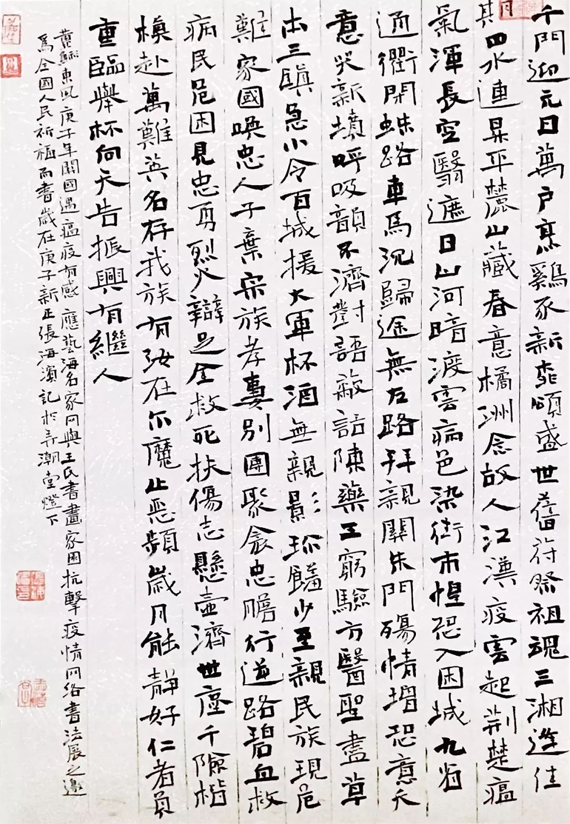 千門迎元日萬戶烹雞豕新桃頌盛世舊符祭祖魂三湘逢佳
其四水連昇平麓山藏春意橘洲念故人江漢疫雲起荊楚瘟
氣渾長空翳遮日山河暗渡雲病邑染街市惶恐入困城九省
通衢閉蛛路車馬沉歸途無左路拜親關朱門殤情增恐意夭
意哭新墳呼吸顫不濟對語敝話陳藥工窮驗方醫聖盡草
出三鎮急小令百城援大軍杯酒無親影珍饈少至親民族現危
難家國喚忠人子棄宗族孝妻別團聚念忠膽行逆路碧血救
病民危困見忠勇烈火辯足金救死扶傷志懸壺濟世塵千險楷
模赴萬難英名存我族有汝在尔魔止惡頻歲月能靜好仁者負
重臨舉杯向天告振興有繼人
東風庚子年關國遇瘟疫有感應藝海名家网與王氏書畫家因抗擊疫情网絡書法展之邀
為全國人民祈福而書歲在庚子新正張海濱記於弄潮堂燈下